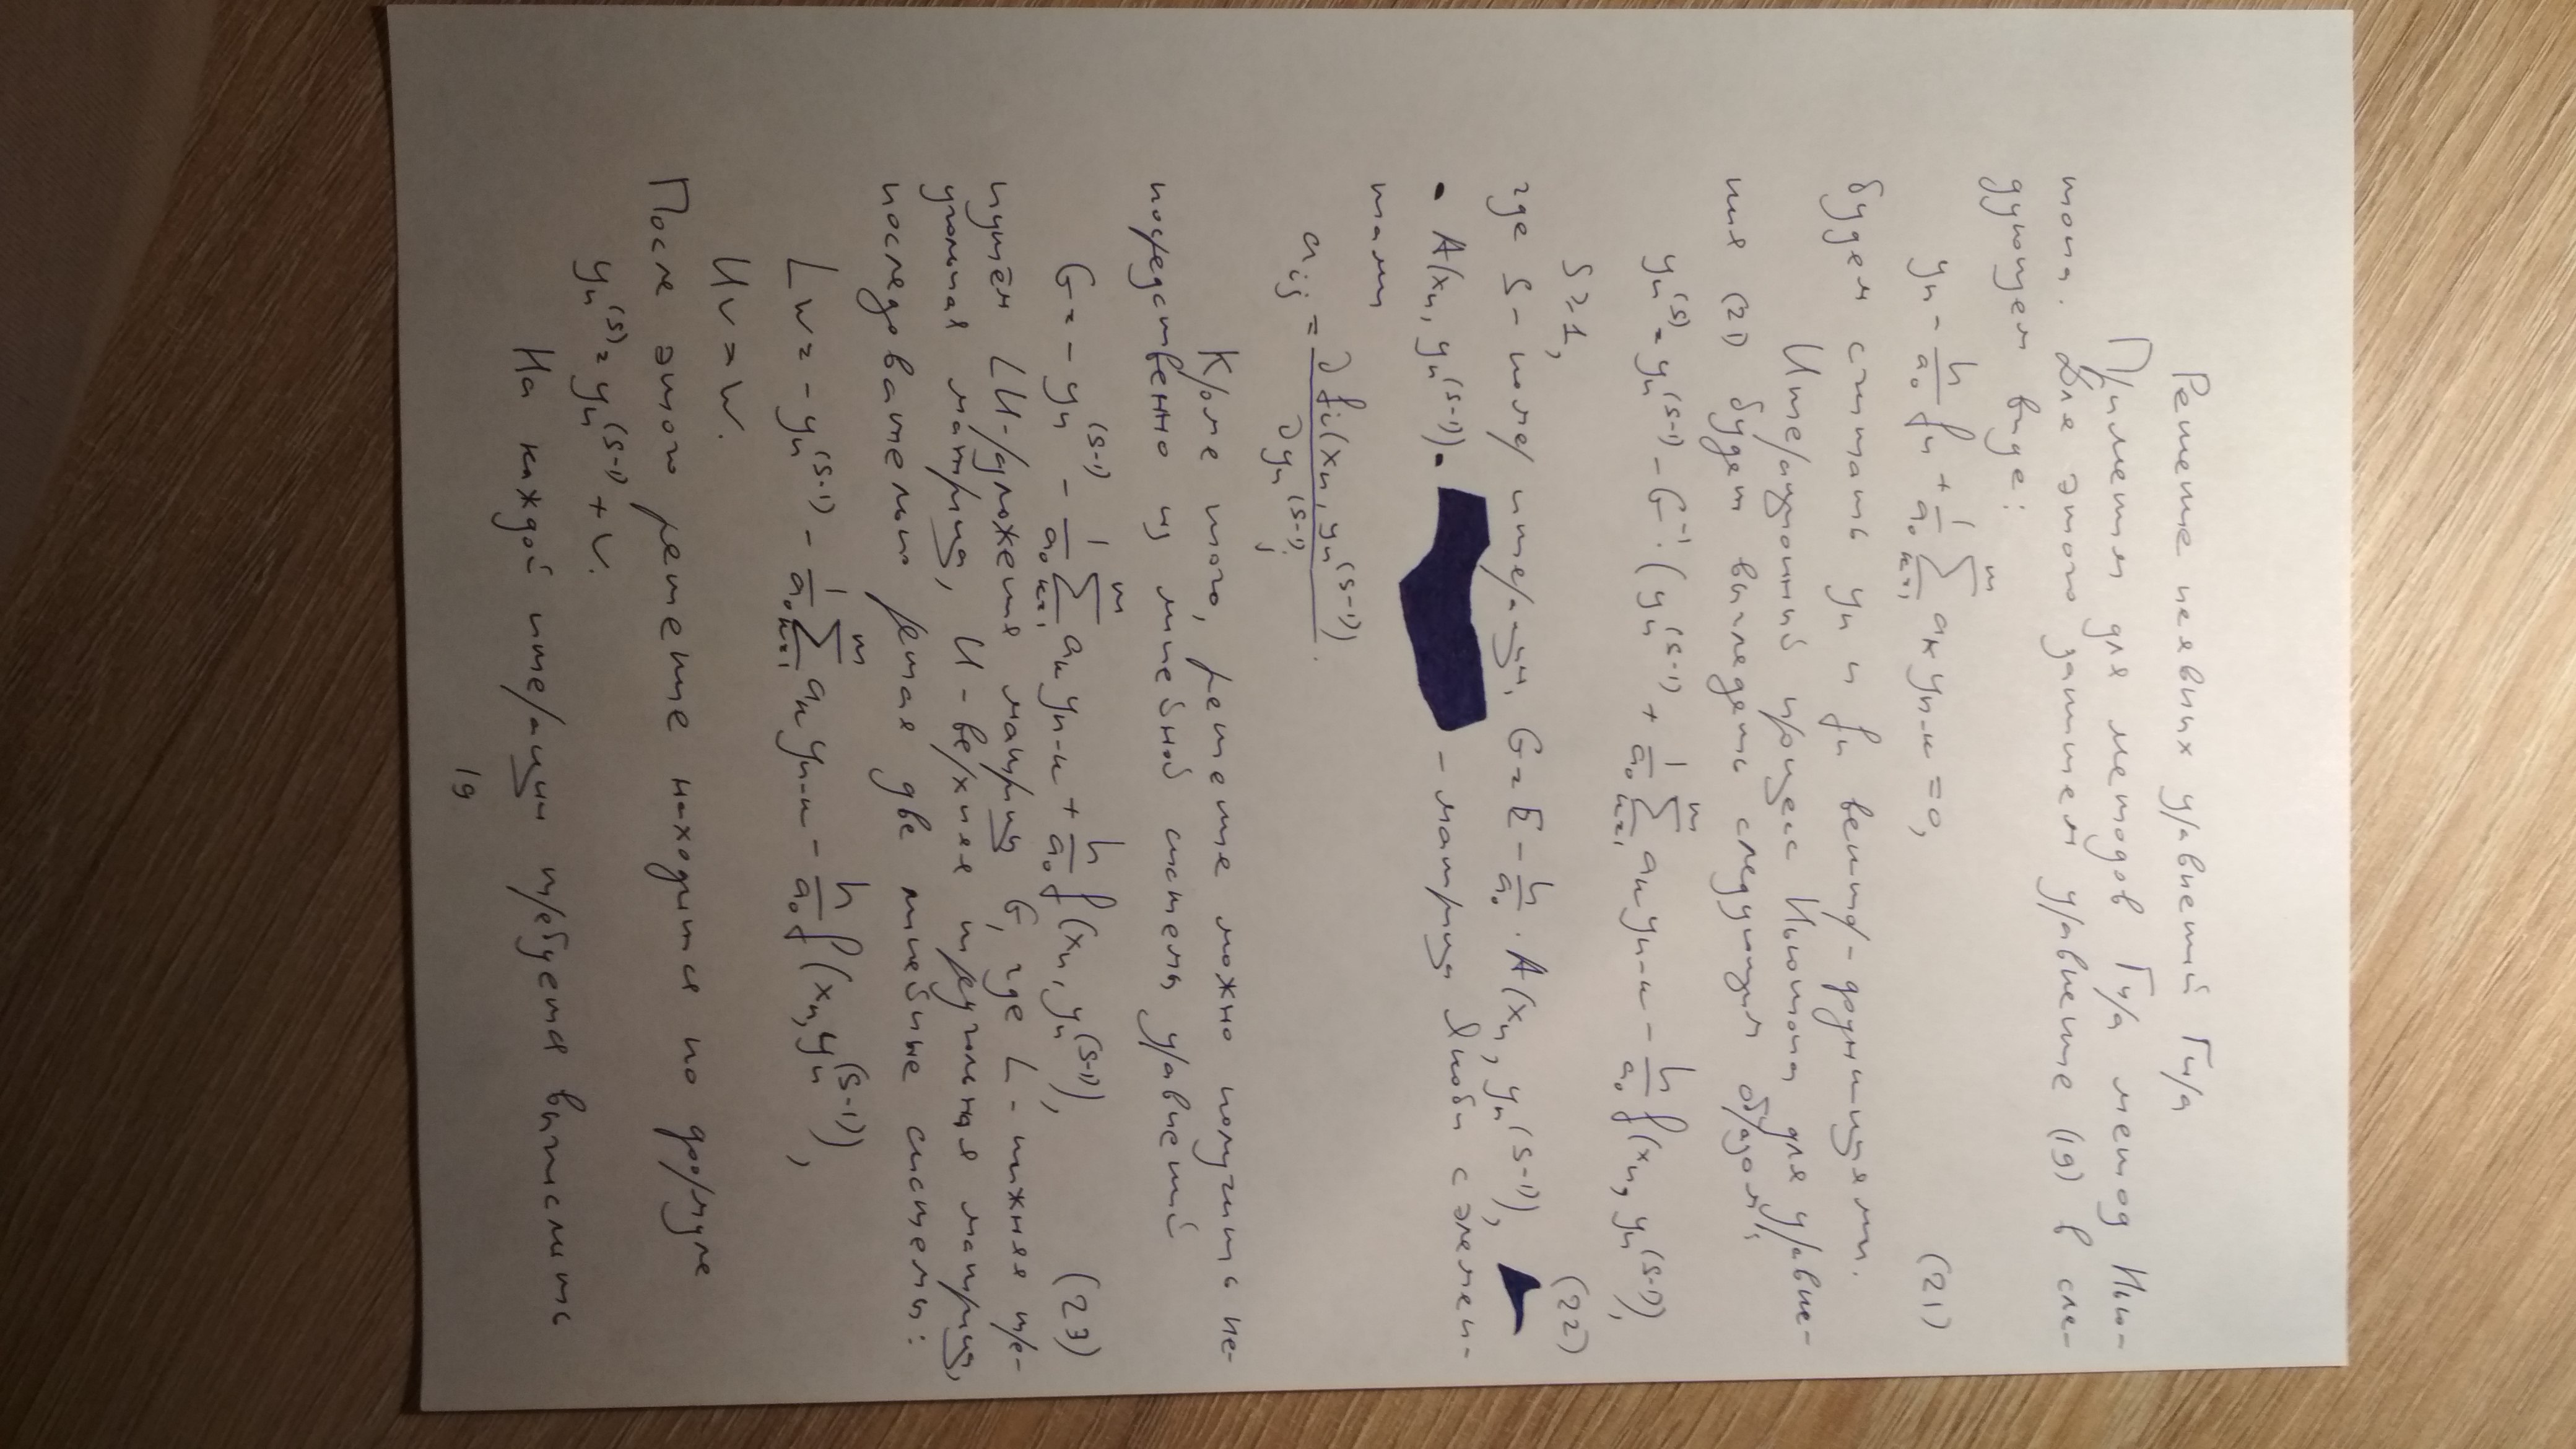 Решение неявных уравнений Гира
Применим для методов Гира метод Нью-
тона. Для этого запишем уравнение (19) в сле-
дующем виде:
yₙ - h/a₀ fₙ + 1/a₀ ∑_{k=1}^{m} aₖ yₙ₋ₖ = 0, (21)
будем считать yₙ и fₙ вектор-функциями.
Итерационный процесс Ньютона для уравне-
ния (21) будет выглядеть следующим образом:
yₙ^(s) = yₙ^(s-1) - G^-1 · (yₙ^(s-1) + 1/a₀ ∑_{k=1}^{m} aₖ yₙ₋ₖ - h/a₀ f(xₙ, yₙ^(s-1)),
s ≥ 1, (22)
где s - номер итерации, G = E - h/a₀ · A(xₙ, yₙ^(s-1)),
A(xₙ, yₙ^(s-1)) - матрица Якоби с элемен-
тами
a_ij = ∂fi(xₙ, yₙ^(s-1)) / ∂yₙ^(s-1)_j.
Кроме того, решение можно получить не-
посредственно из линейной системы уравнений
G = - yₙ^(s-1) - 1/a₀ ∑_{k=1}^{m} aₖ yₙ₋ₖ + h/a₀ f(xₙ, yₙ^(s-1)), (23)
путём LU-разложения матрицы G, где L - нижняя тре-
угольная матрица, U - верхняя треугольная матрица,
последовательно решая две линейные системы:
Lw = - yₙ^(s-1) - 1/a₀ ∑_{k=1}^{m} aₖ yₙ₋ₖ - h/a₀ f(xₙ, yₙ^(s-1)),
Uv = w.
После этого решение находится по формуле
yₙ^(s) = yₙ^(s-1) + v.
На каждой итерации требуется вычислить
19